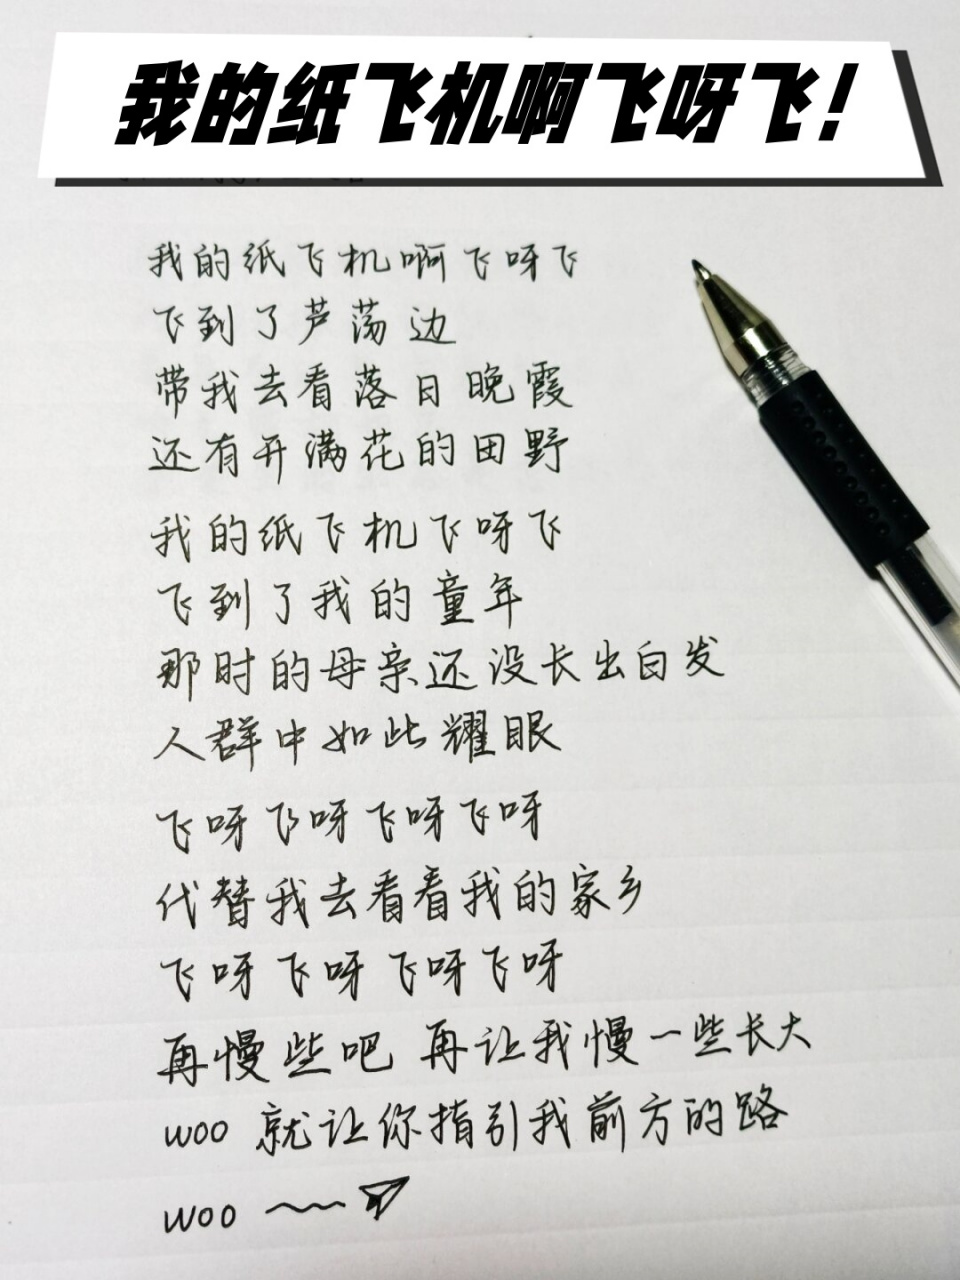 我的纸飞机啊飞呀飞!
我的纸飞机啊飞呀飞
飞到了芦荡边
带我去看落日晚霞
还有开满花的田野
我的纸飞机飞呀飞
飞到了我的童年
那时的母亲还没长出白发
人群中如此耀眼
飞呀飞呀飞呀飞呀
代替我去看看我的家乡
飞呀飞呀飞呀飞呀
再慢些吧 再让我慢一些长大
woo 就让你指引我前方的路
woo